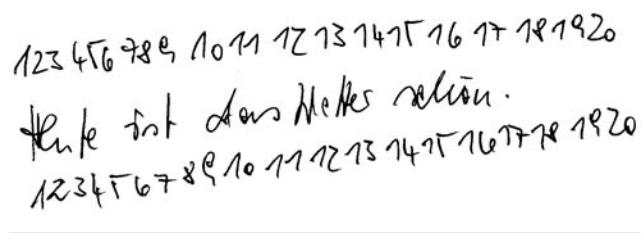 123456789 10 11 12 13 14 15 16 17 18 19 20
Heute ist das Wetter schön.
123456789 10 11 12 13 14 15 16 17 18 19 20